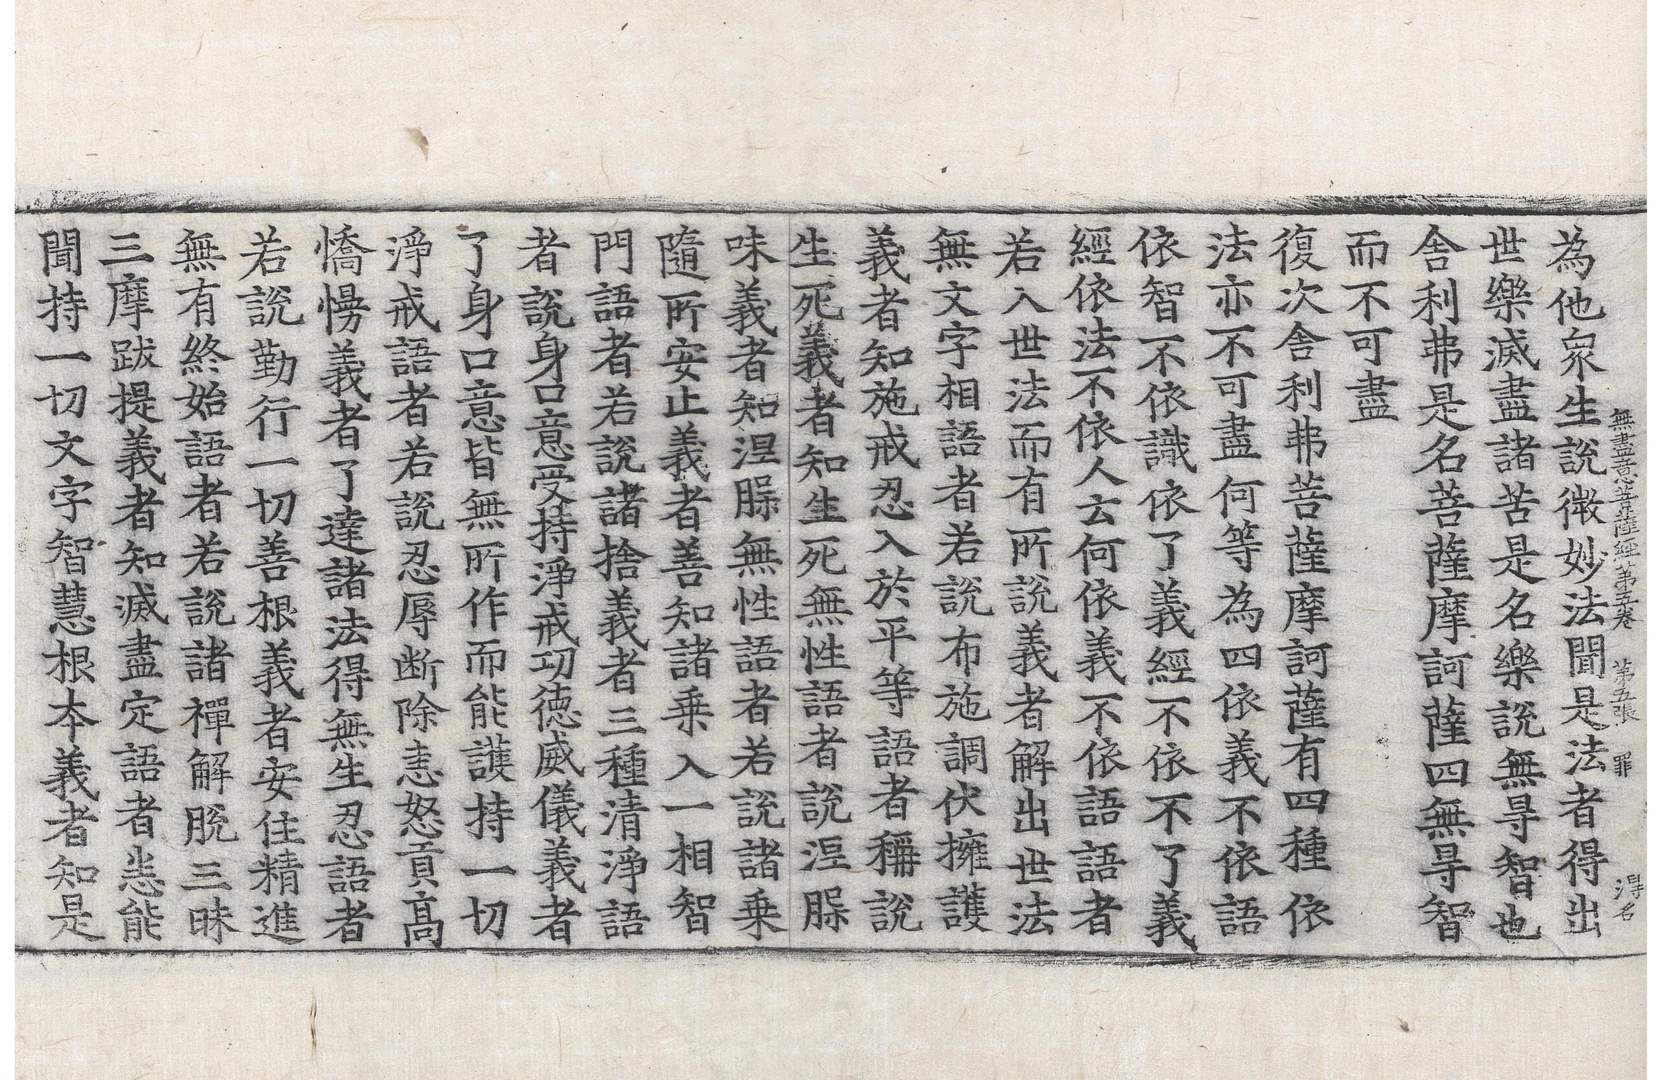 無盡意菩薩經第五卷 第五張 罪 得名
為他衆生說微妙法聞是法者得出
世樂滅盡諸苦是名樂說無㝵智也
舍利弗是名菩薩摩訶薩四無㝵智
而不可盡
復次舍利弗菩薩摩訶薩有四種依
法亦不可盡何等為四依義不依語
依智不依識依了義經不依不了義
經依法不依人云何依義不依語語者
若入世法而有所說義者解出世法
無文字相語者若說布施調伏擁護
義者知施戒忍入於平等語者稱說
生死義者知生死無性語者說涅槃
味義者知涅槃無性語者若說諸乘
隨所安止義者善知諸乘入一相智
門語者若說諸捨義者三種清淨語
者說身口意受持淨戒功德威儀義者
了身口意皆無所作而能護持一切
淨戒語者若說忍辱断除恚怒貢高
憍慢義者了達諸法得無生忍語者
若說勤行一切善根義者安住精進
無有終始語者若說諸禪解脫三昧
三摩跋提義者知滅盡定語者悉能
聞持一切文字智慧根本義者知是